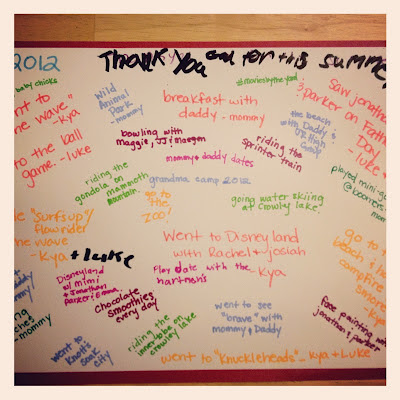 2012
Thank You God for this summer
baby chicks
went to
the wave"
-kya
Wild
Animal
Park
-mommy
breakfast with
daddy - mommy
@moviesbytheyard
the beach
with Daddy's
High
Group
Saw Jonathan
& parker on
luke +
to the ball
game. -luke
bowling with
Maggie, JJ & Maegen
mommy & daddy dates
riding the
sprinter train
played mini-golf
riding the
gondola on mammoth
mountain
grandma camp 2012
go to
the
zoo!
going water skiing
at crowly lake
"surfs up/
flounder
the wave
-kya
+ Luke
Went to Disneyland
with Rachel + Josiah
-Kya
go to
beach &
campfire
smores
-Kya
Disneyland
w/ mimi
+ Jonathan
parker: Emma
Play date with the
hartman's
chocolate
smoothies
every day
-mommy
riding the
innertube on
crowley lake
went to see
"brave" with
mommy & Daddy
face painting with
jonathan & parker
went to
Knott's
soak
city
went to "Knuckleheads" - Kya + Luke